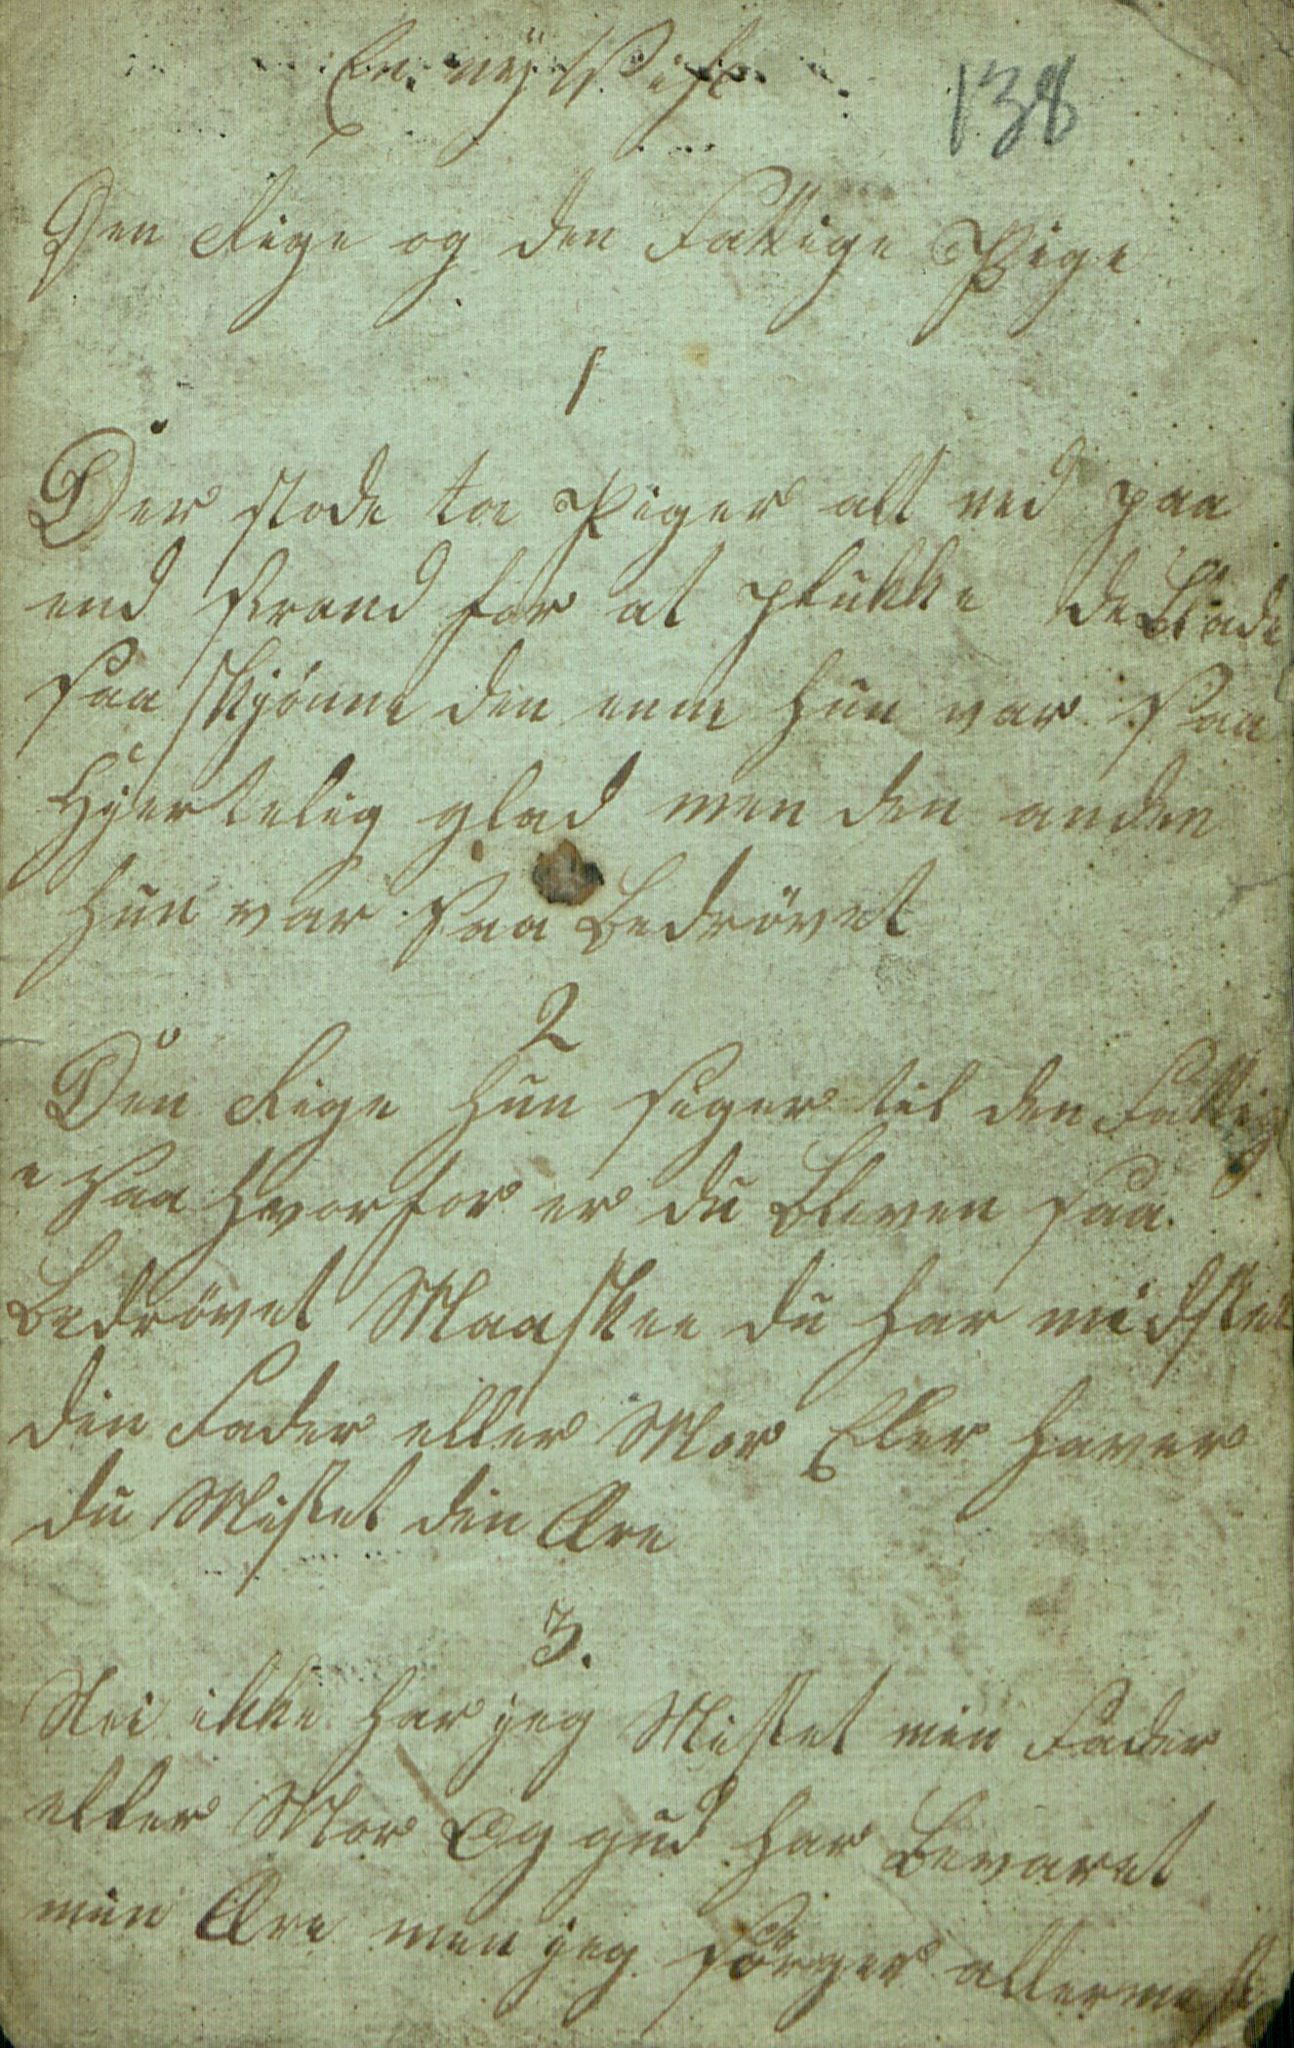 En ny Vise
138
Den Rige og den Fattige Pige
1
Der stode to Piger alt ned paa
end strand for at plukke de Blade
saa skjönne den enne hun var saa
Hjertelig glad men den anden
hun var saa Bedrövet
2
Den Rige hun siger til den Fattig
e saa hvorfor er du Bleven saa
Bedrövet Maaskee du har midstet
din Fader eller Mor Eler haver
du Mistet din Ære
3.
Nei ikke har jeg Mistet min Fader
eller Mor Og gud har Bevaret
min Ære men jeg sörger allermest